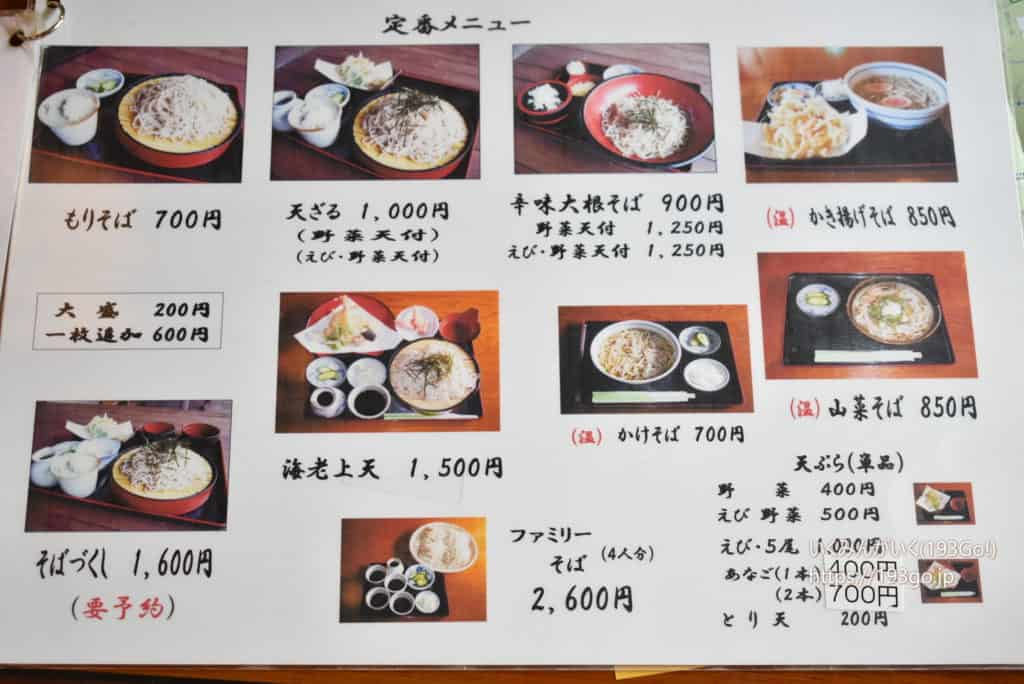 定番メニュー
もりそば 700円
天ざる 1,000円
(野菜天付)
(えび・野菜天付)
辛味大根そば 900円
野菜天付 1,250円
えび・野菜天付 1,250円
(温) かき揚げそば 850円
大盛 200円
一枚追加 600円
海老上天 1,500円
(温) かけそば 700円
(温) 山菜そば 850円
そばづくし 1,600円
(要予約)
ファミリー
そば (4人分)
2,600円
天ぷら(単品)
野菜 400円
えび 野菜 500円
えび・5尾 1,000円
あなご(1本) 400円
(2本) 700円
とり天 200円
(193Go!)
https://193go.jp